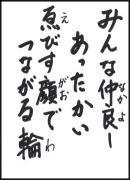 みんな仲良し
あったかい
恵びす顔で
つながる輪
なかよ
え
がお
わ